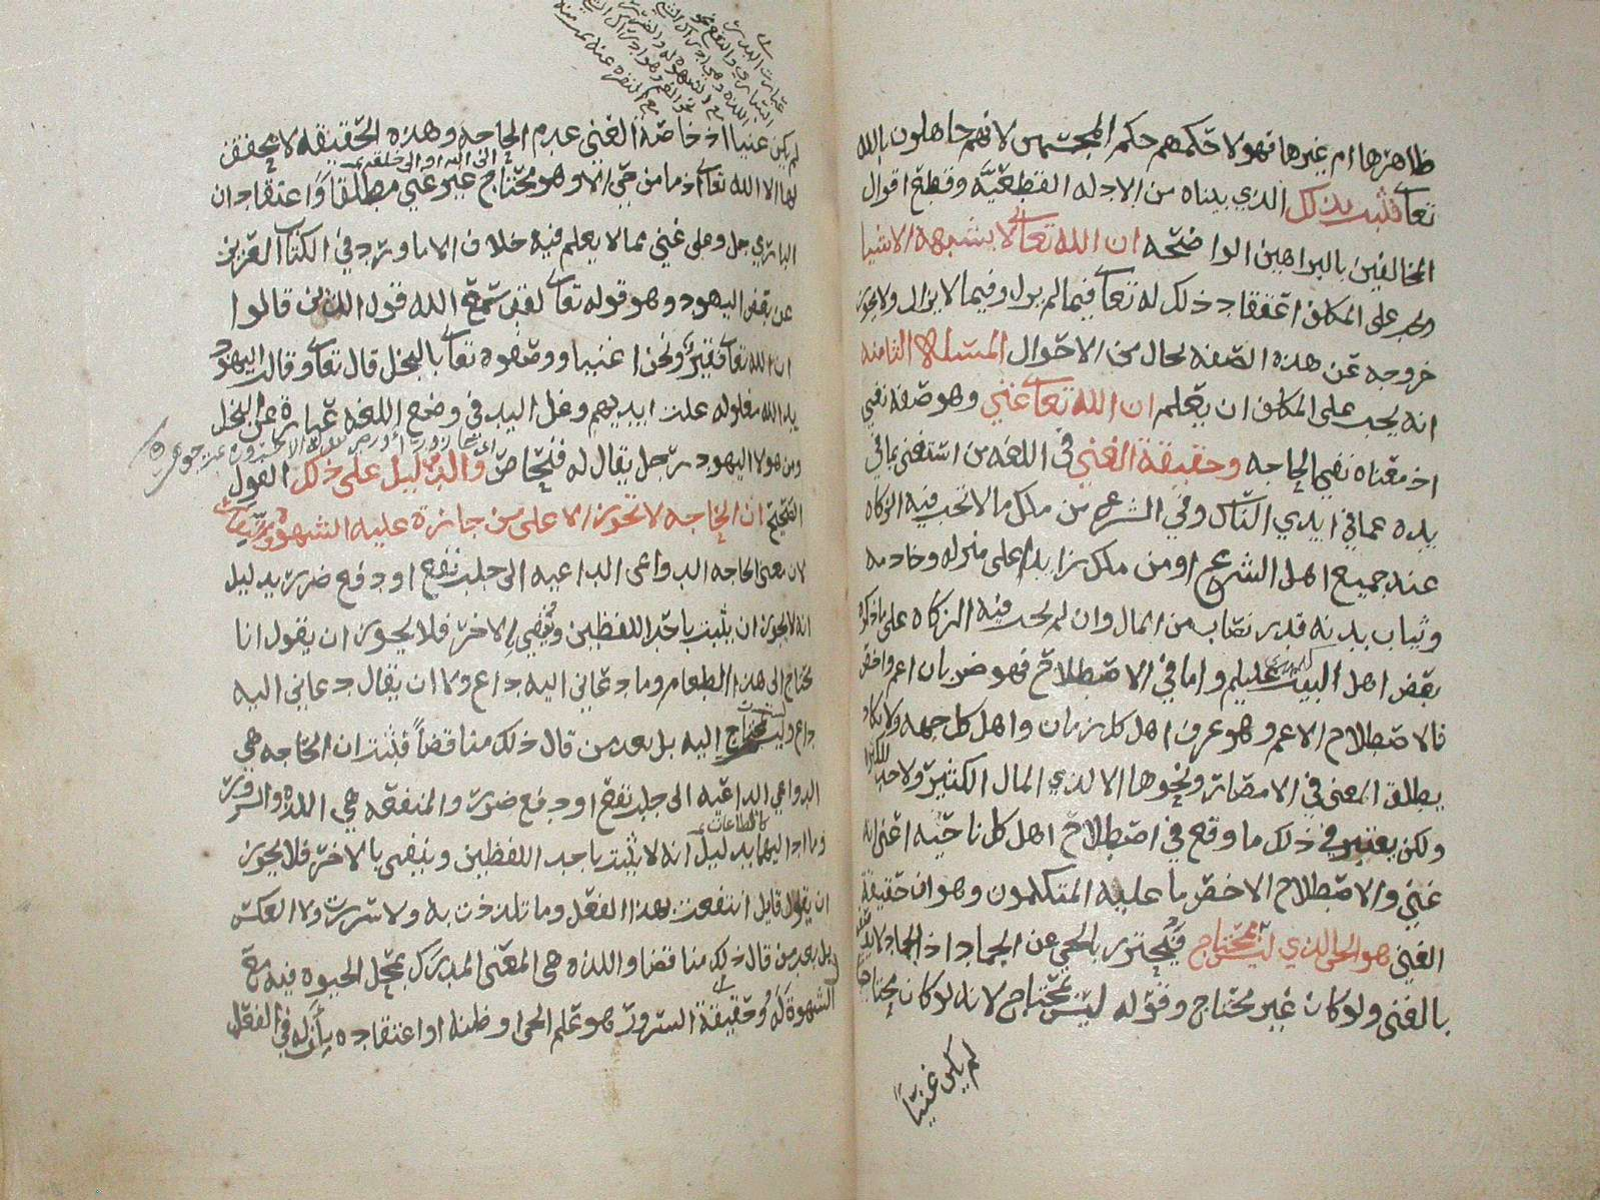 ظاهرها ام غيرها فهولا حكمهم حكم المجسمين لانهم جاهلون بالله
تعالى فثبت بذلك الذي بيناه من الادله القطعيه وقطع اقوال
المخالفين بالبراهين الواضحه ان الله تعالى لا يشبهه الاشيا
على المكلف اعتقاد ذلك له تعالى فيما لم يزل وفيما لا يزال ولا يجوز
خروجه عن هذه الصفه بحال من الاحوال المسئله الثامنه
انه يجب على المكلف ان يعلم ان الله تعالى غني وهو صفه نفي
اذ معناه نفي الحاجه وحقيقة الغني في اللغه من استغنى بما في
يده عما في ايدي الناس وفي الشرع من ملك مالا تجب فيه الزكاه
عند جميع اهل الشرع او من ملك زايدا على منزله وخادمه
وثياب بدنه قدر نصاب من المال وان لم يجب فيه الزكاه على ما ذكره
بعض اهل البيت عليهم واما في الاصطلاح فهو ضربان اعم واخص
فالاصطلاح الاعم وهو عرف اهل كل زمان واهل كل جهه ولا يكاد
يطلق المعنى في الامصار ونحوها الا لذي المال الكثير ولا حد
ولكن يعتبر في ذلك ما وقع في اصطلاح اهل كل ناحيه اعني انه
غني والاصطلاح الاخص ما عليه المتكلمون وهو ان حقيقة
الغني هو الحي الذي ليس بمحتاج فيحترز بالحي عن الجماد اذ الجماد لا
بالغنى ولو كان غير محتاج وقوله ليس بمحتاج لانه لو كان محتاجا
لم يكن غنيا
لم يكن غنيا اذ خاصة الغني عدم الحاجه وهذه الحقيقه لا تتحقق
لها الا الله تعالى اذ ما من حي الا وهو محتاج غير غني مطلقا واعتقاد ان
الباري جل وعلى غني مما لا يعلم فيه خلاف الا ما ورد في الكتاب العزيز
عن بعض اليهود وهو قوله تعالى لقد سمع الله قول الذين قالوا
ان الله تعالى فقير ونحن اغنيا ووصفوه تعالى بالبخل قال تعالى وقالت اليهود
يد الله مغلوله غلت ايديهم وغل اليد في وضع اللغه عبارة عن البخل
ومن هولا اليهود رجل يقال له فنحاص والدليل على ذلك القول
الصحيح ان الحاجه لا تجوز الا على من جازت عليه الشهوه
لان معنى الحاجه الدواعي الداعيه الى جلب نفع او دفع ضرر بدليل
انه لا يجوز ان يثبت باحد اللفظين وينفي الاخر فلا يجوز ان يقول انا
محتاج الى هذا الطعام وما دعاني اليه داع ولا ان يقال دعاني اليه
داع وليس بمحتاج اليه بل يعد من قال ذلك مناقضا فثبت ان الحاجه هي
الدواعي الداعيه الى جلب نفع او دفع ضرر والمنفعه هي اللذه والسرور
وما ادا اليهما بدليل انه لا يثبت باحد اللفظين وينفي بالاخر فلا يجوز
ان يقول قايل انتفعت بهذا الفعل وما تلذذت به ولا سررت ولا العكس
بل يعد من قال ذلك مناقضا واللذه هي المعنى المدرك بمحل الحيوه فيه مع
الشهوة له وحقيقة السرور هو علم الحي او ظنه او اعتقاده بان له في الفعل